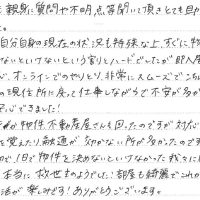 親身に質問や不明点等聞いて頂きとても助か
た。
自分自身の現在の状況も特殊な上、すぐに物
ないといけないという割とハードでしたが即入居
、オンラインでのやりとり、非常にスムーズでこち
の現住所に戻って仕事しながらで不安が多か
安心できました！
物件不動産屋さんも回ったのですが対応
を覚えたり融通が効かない所が多かったのです
ので、1日で物件を決めないといけなかった我々に
本当に救世主のようでした！部屋も綺麗でこれか
活が楽しみです！ありがとうございます。